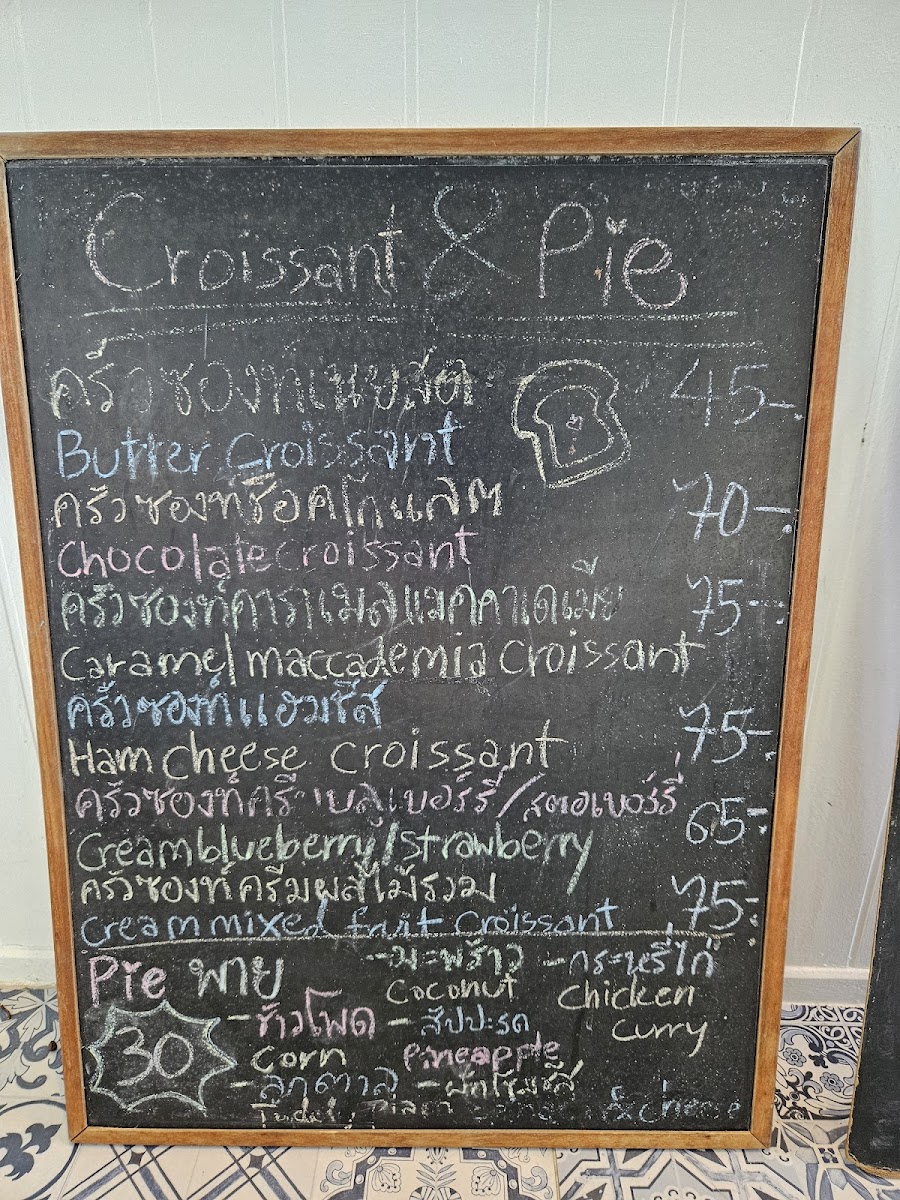 Croissant & Pie
ครัวซองท์เนยสด 45-
Butter Croissant
ครัวซองท์ช็อคโกแลต 70-
Chocolate croissant
ครัวซองท์คาราเมลแมคคาเดเมีย 75-
Caramel maccademia croissant
ครัวซองท์แฮมชีส 75-
Ham cheese croissant
ครัวซองท์ครีมบลูเบอร์รี่/สตอเบอร์รี่ 65-
Cream blueberry/strawberry
ครัวซองท์ครีมผลไม้รวม 75-
Cream mixed fruit croissant
Pie พาย
30
-ข้าวโพด
Corn
-ลูกตาล
-มะพร้าว
Coconut
-สัปปะรด
Pineapple
-ผักโขมชีส
& cheese
-กระหรี่ไก่
Chicken
curry